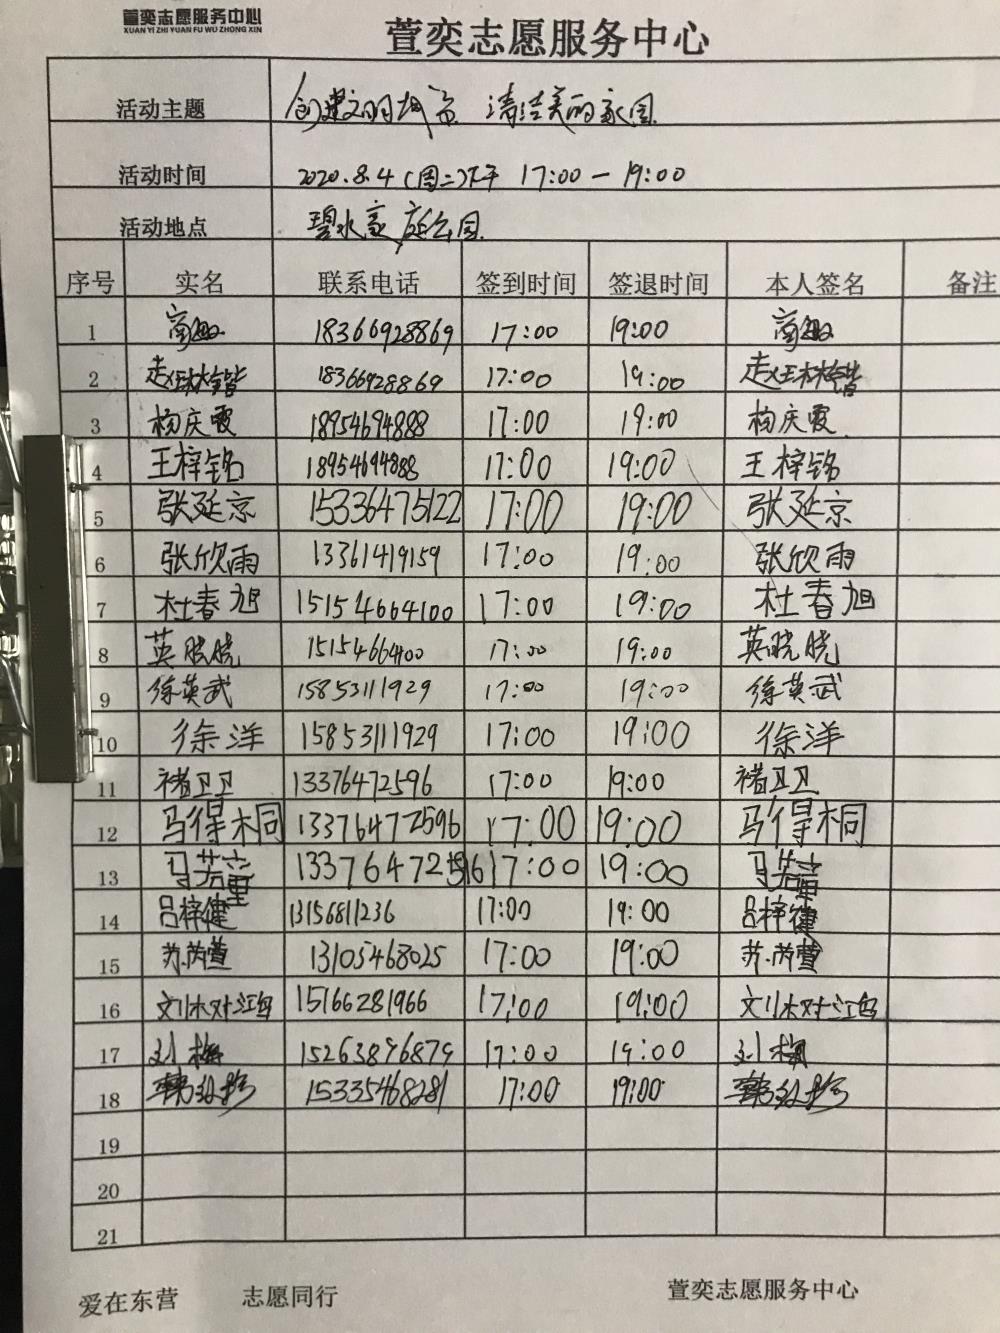 萱奕志愿服务中心
XUAN YI ZHI YUAN FU WU ZHONG XIN
萱奕志愿服务中心
活动主题 创建文明城市 清洁美丽家园
活动时间 2020.8.4(周二)下午 17:00-19:00
活动地点 碧水豪庭公园
序号 实名 联系电话 签到时间 签退时间 本人签名 备注
1 18366928869 17:00 19:00
2 赵珏林锴 18366928869 17:00 19:00 赵珏林锴
3 杨庆霞 18954694888 17:00 19:00 杨庆霞
4 王梓铭 18954694888 17:00 19:00 王梓铭
5 张延京 15336475122 17:00 19:00 张延京
6 张欣雨 13361419159 17:00 19:00 张欣雨
7 杜春旭 15154664100 17:00 19:00 杜春旭
8 英晓晓 15154664100 17:00 19:00 英晓晓
9 徐英武 15853111929 17:00 19:00 徐英武
10 徐洋 15853111929 17:00 19:00 徐洋
11 褚卫卫 13376472596 17:00 19:00 褚卫卫
12 马得桐 13376472596 17:00 19:00 马得桐
13 马若童 13376472596 17:00 19:00 马若童
14 吕梓健 13156811236 17:00 19:00 吕梓健
15 苏芮萱 13105468025 17:00 19:00 苏芮萱
16 15166281966 17:00 19:00
17 刘梅 15263896879 17:00 19:00 刘梅
18 15335468281 17:00 19:00
19
20
21
爱在东营 志愿同行 萱奕志愿服务中心